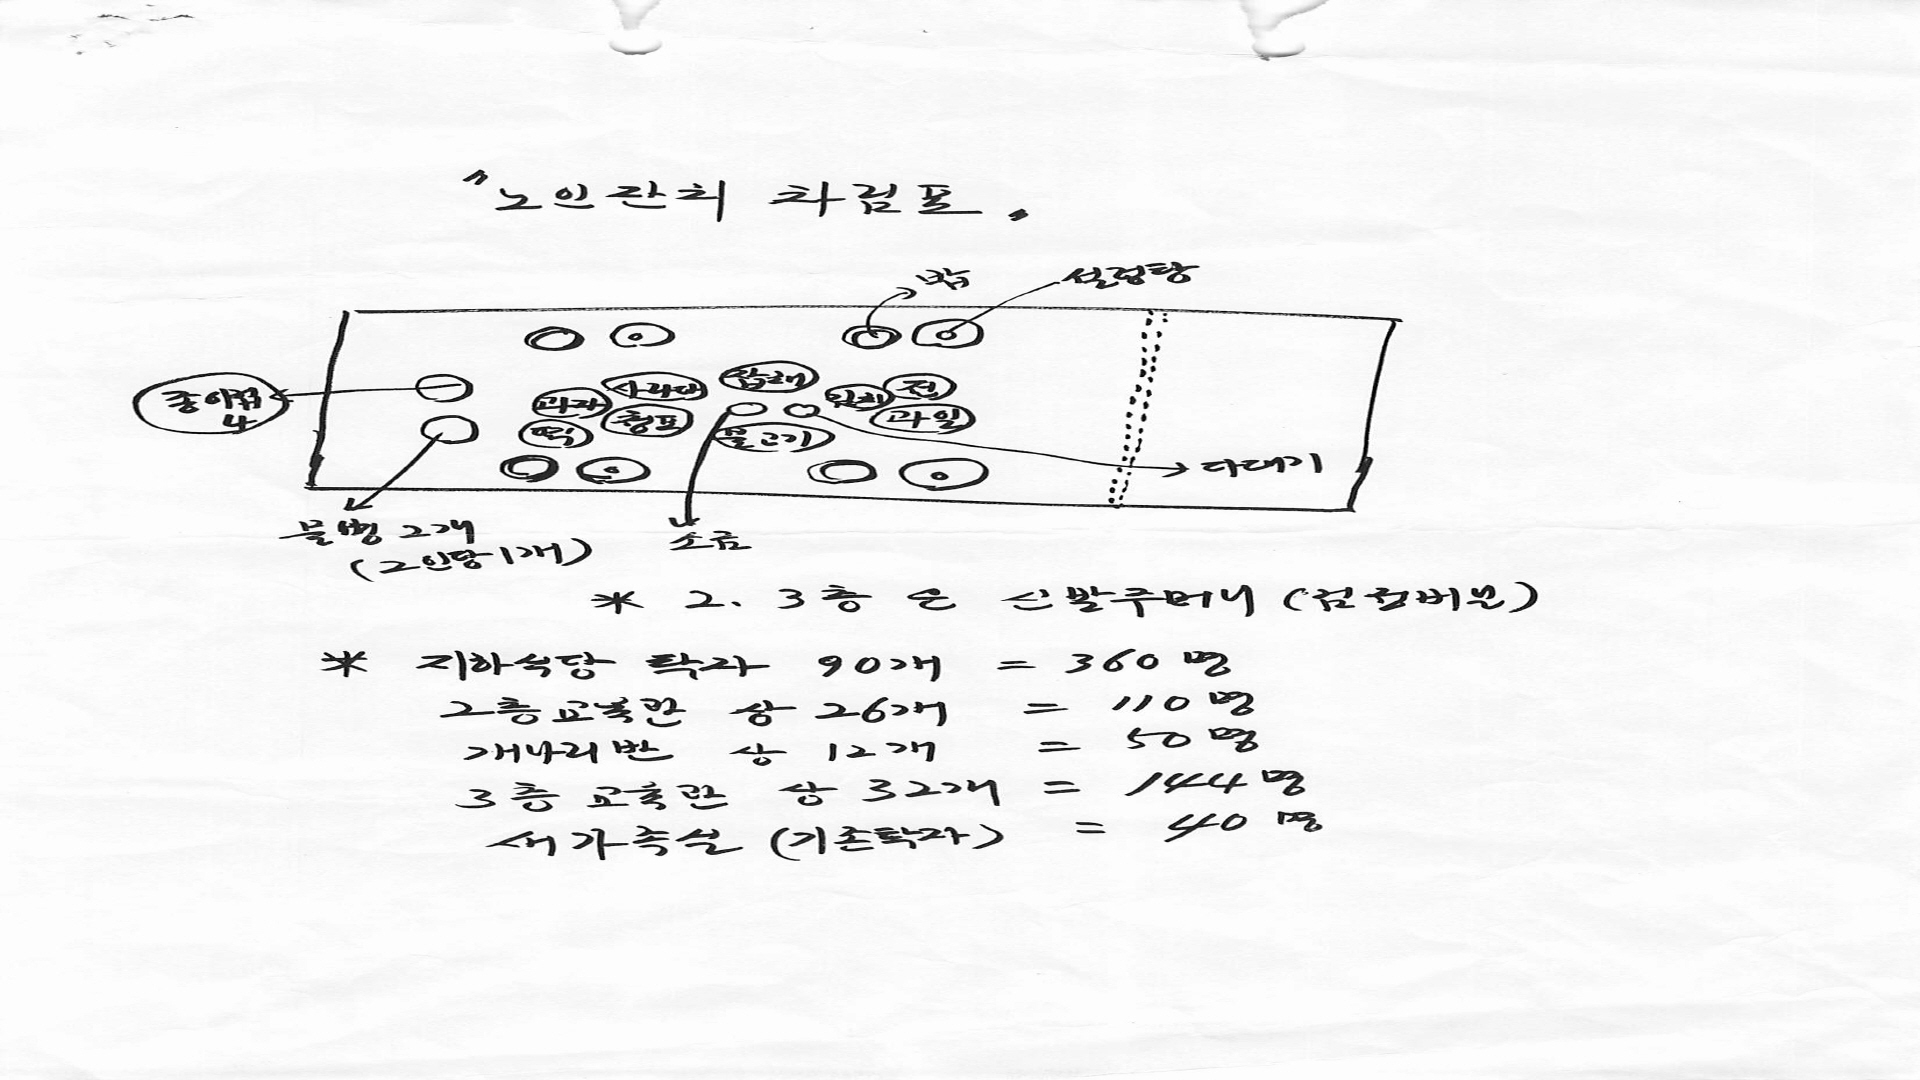 "노인잔치 차림표"
밥 설렁탕
종이컵
4
사라다 잡채
과자 전
청포 과일
떡 불고기
다대기
물병 2개
(2인당 1개)
소금
* 2. 3층은 신발주머니 (검정비닐)
* 지하식당 탁자 90개 = 360명
2층교육관 상 26개 = 110명
개나리반 상 12개 = 50명
3층 교육관 상 32개 = 144명
새가족실 (기존탁자) = 40명